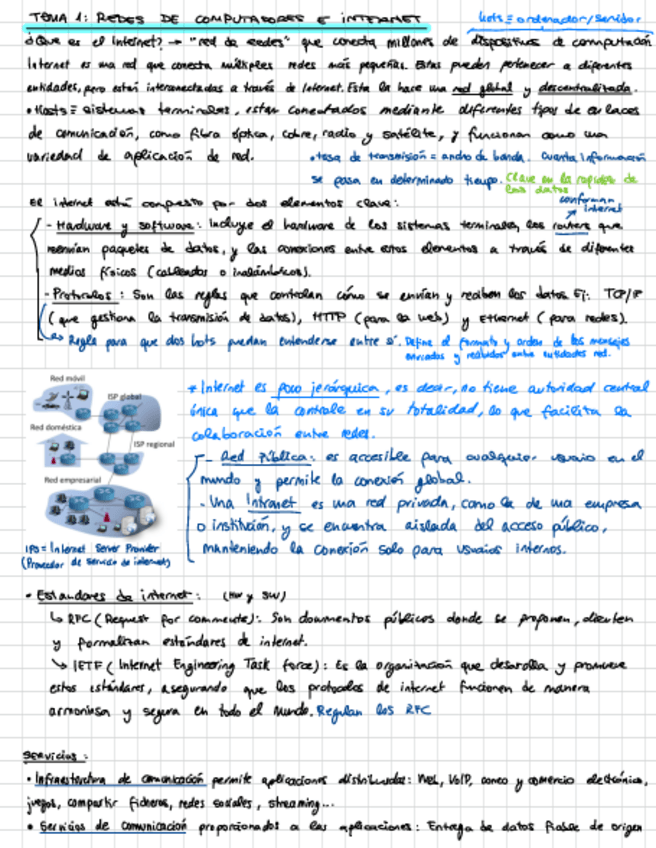 TEMA 1: REDES DE COMPUTADORES E INTERNET
hots ≡ ordenador/servidor
¿Que es el Internet? → "red de redes" que conecta millones de dispositivos de computación
Internet es una red que conecta múltiples redes más pequeñas. Estas pueden pertenecer a diferentes
entidades, pero están interconectadas a través de Internet. Esta la hace una red global y descentralizada.
• Hosts ≡ sistemas terminales, estan conectados mediante diferentes tipos de enlaces
de comunicación, como fibra óptica, cobre, radio y satélite, y funcionan como una
variedad de aplicación de red.
• tasa de transmisión = ancho de banda. Cuanta información
se pasa en determinado tiempo. Clave en la rapidez de
los datos
El internet está compuesto por dos elementos clave:
conforman
internet
- Hardware y software: Incluye el hardware de los sistemas terminales, los routers que
reenvían paquetes de datos, y las conexiones entre estos elementos a través de diferentes
medios físicos (cableados o inalámbricos).
- Protocolos: Son las reglas que controlan cómo se envían y reciben los datos. Ej: TCP/IP
(que gestiona la transmisión de datos), HTTP (para la web) y Ethernet (para redes).
↳ Regla para que dos hots puedan entenderse entre sí. Define el formato y orden de los mensajes
enviados y recibidos entre entidades red.
Red móvil
ISP global
Red doméstica
ISP regional
Red empresarial
IPS = Internet Server Provider
(Proveedor de servicio de internet)
* Internet es poco jerárquica, es decir, no tiene autoridad central
única que la controle en su totalidad, lo que facilita la
colaboración entre redes.
- Red Pública: es accesible para cualquier usuario en el
mundo y permite la conexión global.
- Una Intranet es una red privada, como la de una empresa
o institución, y se encuentra aislada del acceso público,
manteniendo la conexión solo para usuarios internos.
• Estandares de internet: (HW y SW)
↳ RFC (Request for comments): Son documentos públicos donde se proponen, discuten
y formalizan estándares de internet.
↳ IETF (Internet Engineering Task force): Es la organización que desarrolla y promueve
estos estándares, asegurando que los protocolos de internet funcionen de manera
armoniosa y segura en todo el mundo. Regulan los RFC
Servicios:
• Infraestructura de comunicación permite aplicaciones distribuidas: Web, VoIP, correo y comercio electrónico,
juegos, compartir ficheros, redes sociales, streaming...
• Servicios de comunicación proporcionados a las aplicaciones: Entrega de datos fiable de origen